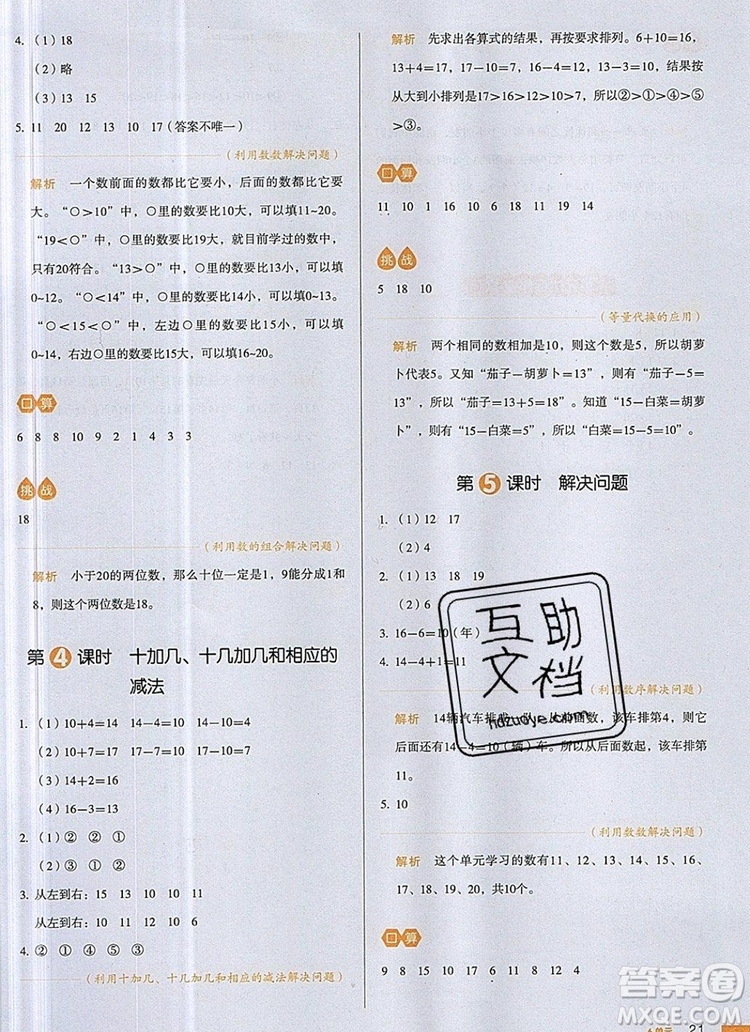 4. (1) 18
(2) 略
(3) 13 15
5. 11 20 12 13 10 17(答案不唯一)
(利用数数解决问题)
解析 一个数前面的数都比它要小,后面的数都比它要
大。“○>10”中,○里的数要比10大,可以填11~20。
“19<○”中,○里的数要比19大,就目前学过的数中,
只有20符合。“13>○”中,○里的数要比13小,可以填
0~12。“○<14”中,○里的数要比14小,可以填
0~13。“○>15>○”中,左边○里的数要比15大,可以填
16~20。“○<15<○”中,左边○里的数要比15小,可以填
0~14,右边○里的数要比15大,可以填16~20。
口算
6 8 8 10 9 2 1 4 3 3
挑战
18
(利用数的组合解决问题)
解析 小于20的两位数,那么十位一定是1,9能分成1和
8,则这个两位数是18。
第4课时 十加几、十几加几和相应的
减法
1. (1) 10+4=14 14-4=10 14-10=4
(2) 10+7=17 17-7=10 17-10=7
(3) 14+2=16
(4) 16-3=13
2. (1) ① ② ①
(2) ③ ② ①
3. 从左到右:15 13 10 10 11
从左到右:12 10 15 17 16
4. ② ① ④ ⑤ ③
(利用十加几、十几加几和相应的减法解决问题)
解析 先求出各算式的结果,再按要求排列。6+10=16,
13+4=17,17-10=7,16-4=12,13-3=10,结果按
从大到小排列是17>16>12>10>7,所以②>①>④>⑤
>③。
口算
11 10 1 16 10 6 18 11 19 14
挑战
5 18 10
(等量代换的应用)
解析 两个相同的数相加是10,则这个数是5,所以胡萝
卜代表5。又知“茄子-胡萝卜=13”,则“茄子-5=
13”,所以“茄子=13+5=18”。知道“15-白菜=胡萝
卜”,则“15-白菜=5”,所以“白菜=15-5=10”。
第5课时 解决问题
1. (1) 12 17
(2) 4
2. (1) 13 18 19
(2) 6
3. 16-6=10(年)
4. 14-4+1=11
(利用数序解决问题)
解析 14辆汽车排成一队,从前面数,该车排第4,则它
后面还有14-4=10(辆)车。所以从后面数起,该车排第
11。
5. 10
(利用数数解决问题)
解析 这个单元学习的数有11、12、13、14、15、16、
17、18、19、20,共10个。
口算
9 8 15 10 9 6 12 7 16 12
单元 21
互助
文档
hdzuoye.com
答案圈
MXQE.COM